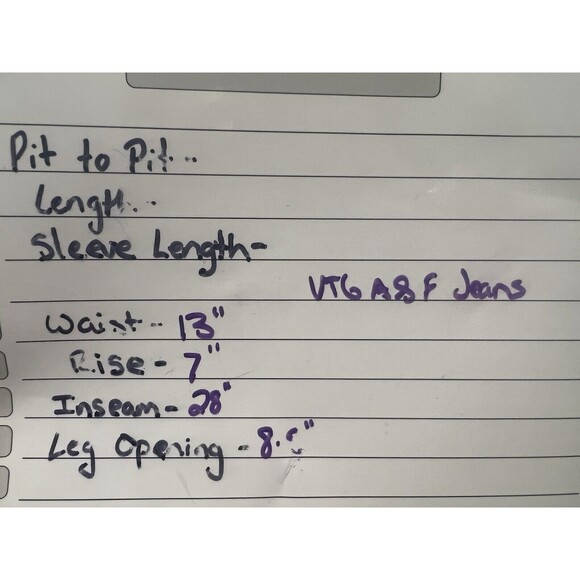 Pit to Pit--
Length--
Sleeve Length-
VTG A&F Jeans
Waist-- 13"
Rise- 7"
Inseam- 28"
Leg Opening -